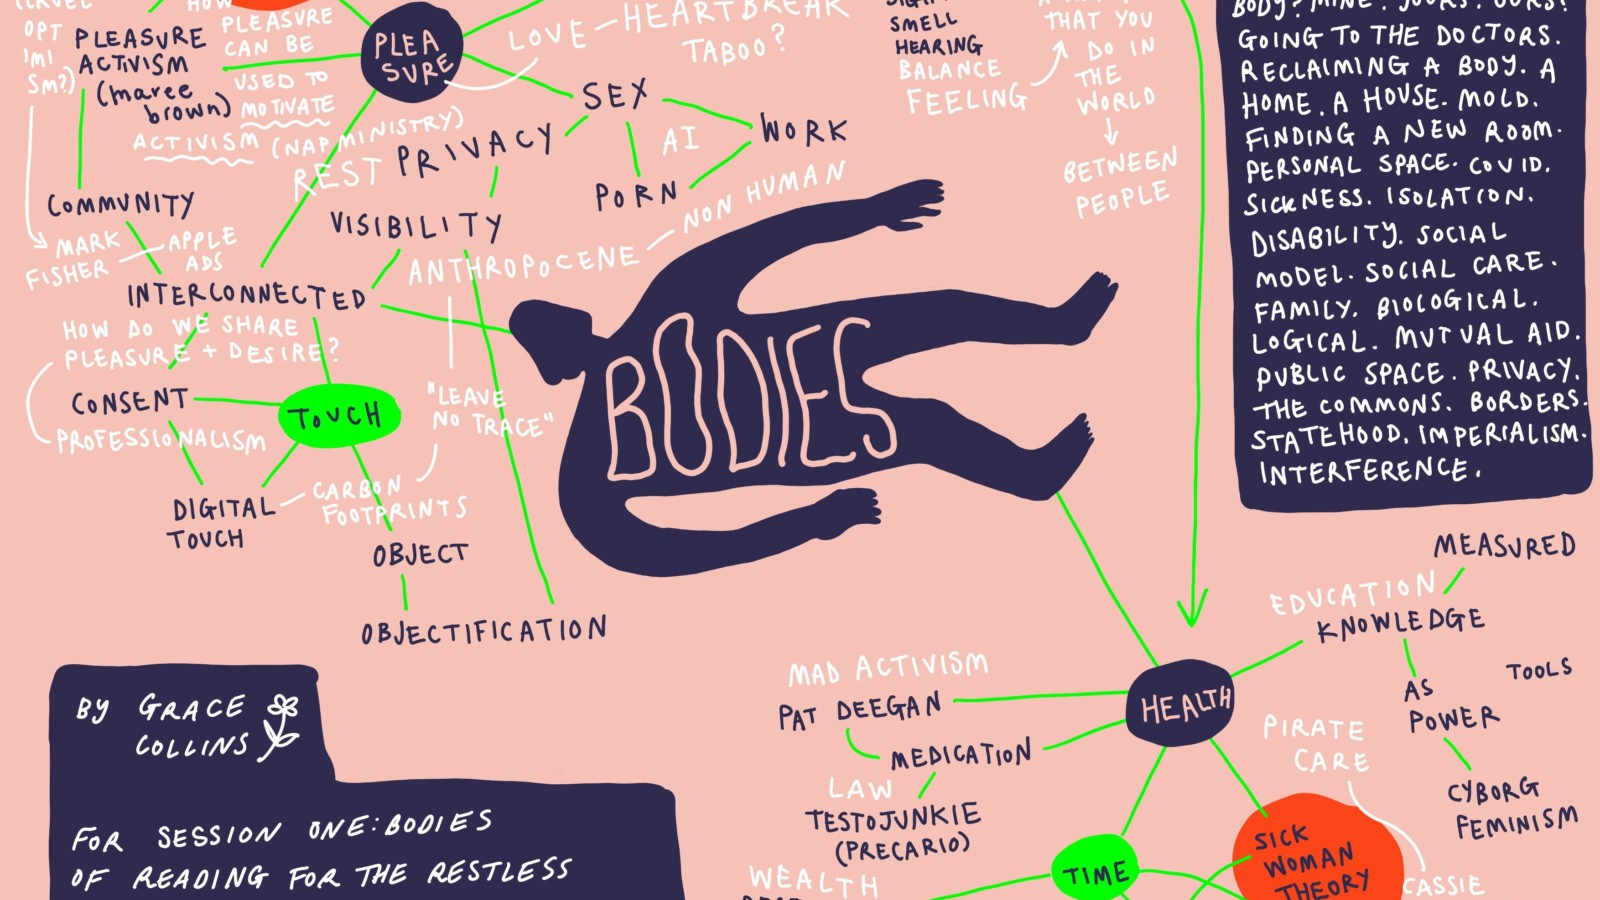 HOW
PLEASURE
CAN BE
USED TO
MOTIVATE
ACTIVISM (NAP MINISTRY)
REST
OPT
Sm?)
PLEASURE
ACTIVISM
(maree
brown)
PLEA
SURE
LOVE — HEARTBREAK
TABOO?
SEX
AI
WORK
PORN
PRIVACY
VISIBILITY
NON HUMAN
ANTHROPOCENE
COMMUNITY
MARK
FISHER
APPLE
ADS
INTERCONNECTED
HOW DO WE SHARE
PLEASURE + DESIRE?
CONSENT
PROFESSIONALISM
TOUCH
"LEAVE
NO TRACE"
DIGITAL
TOUCH
CARBON
FOOTPRINTS
OBJECT
OBJECTIFICATION
BODIES
SMELL
HEARING
BALANCE
FEELING
THAT YOU
DO IN
THE
WORLD
BETWEEN
PEOPLE
BODY? MINE? YOURS? OURS?
GOING TO THE DOCTORS.
RECLAIMING A BODY. A
HOME. A HOUSE. MOLD.
FINDING A NEW ROOM.
PERSONAL SPACE. COVID.
SICKNESS. ISOLATION.
DISABILITY. SOCIAL
MODEL. SOCIAL CARE.
FAMILY. BIOLOGICAL.
LOGICAL. MUTUAL AID.
PUBLIC SPACE. PRIVACY.
THE COMMONS. BORDERS.
STATEHOOD. IMPERIALISM.
INTERFERENCE.
MEASURED
EDUCATION
KNOWLEDGE
TOOLS
AS
POWER
CYBORG
FEMINISM
HEALTH
MAD ACTIVISM
PAT DEEGAN
MEDICATION
LAW
TESTOJUNKIE
(PRECARIO)
WEALTH
TIME
PIRATE
CARE
SICK
WOMAN
THEORY
CASSIE
BY GRACE
COLLINS
FOR SESSION ONE: BODIES
OF READING FOR THE RESTLESS